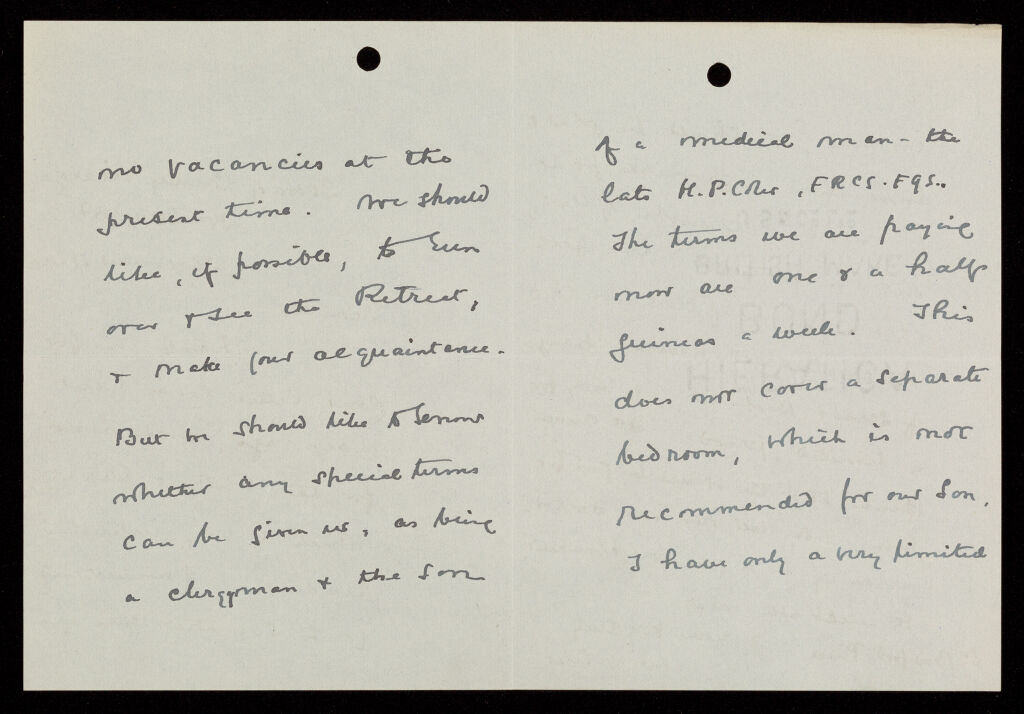 no vacancies at the
present time. We should
like, if possible, to run
over & see the Retreat,
& make your acquaintance.
But we should like to know
whether any special terms
can be given us, as being
a clergyman & the son
of a medical man - the
late H.P. , F.R.C.S. F.G.S..
The terms we are paying
now are one & a half
guineas a week. This
does not cover a separate
bedroom, which is not
recommended for our Son.
I have only a very limited